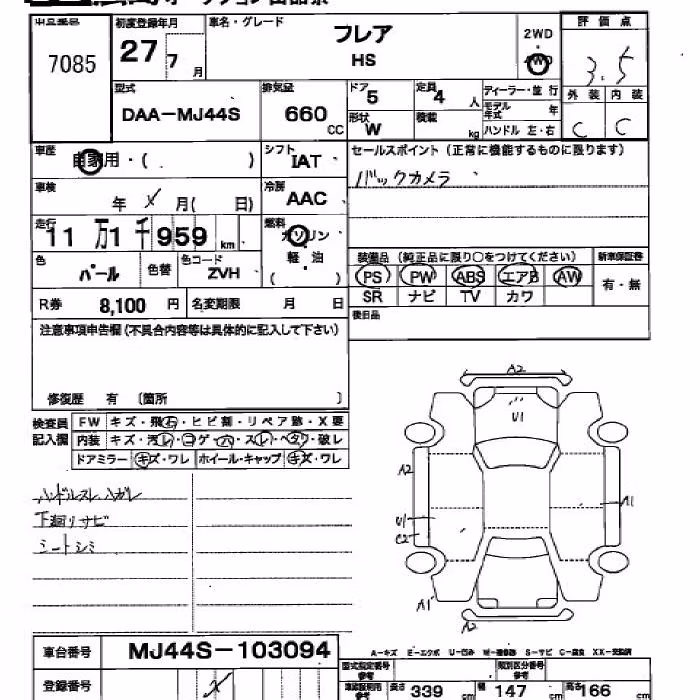 7085
初度登録年月
27 7 月
車名・グレード
フレア
HS
2WD
4WD
評価点
3.5
外装 内装
C C
型式
DAA-MJ44S
排気量
660 CC
ドア 5
定員 4 人
ディーラー・並行
形状 W
積載 kg
モデル年式 年
ハンドル 左・右
車歴
自家用・( )
シフト
IAT
セールスポイント(正常に機能するものに限ります)
バックカメラ
車検
年 X 月( 日)
冷房
AAC
走行
11万1千959 km
燃料
ガソリン
軽・油
( )
色
パール
色替
色コード
ZVH
装備品(純正品に限り○をつけてください)
新車保証書
PS PW ABS エアB AW
有・無
SR ナビ TV カワ
R券 8,100 円
名変期限 月 日
後日品
注意事項申告欄(不具合内容等は具体的に記入して下さい)
修復歴 有 〔箇所 〕
検査員
記入欄
FW キズ・飛石・ヒビ割・リペア跡・X要
内装 キズ・汚レ・コゲ・穴・スレ・ヘタリ・破レ
ドアミラー キズ・ワレ ホイール・キャップ キズ・ワレ
ハンドルスレ ハガレ
下廻りサビ
シートシミ
A2
U1
A2
A1
U1
C2
A1
A2
車台番号 MJ44S-103094
A-キズ E-エクボ U-凹み W-補修跡 S-サビ C-腐食 XX-交換済
登録番号 X
型式指定番号
参考
類別区分番号
参考
長さ 339 cm
幅 147 cm
高さ 166 cm